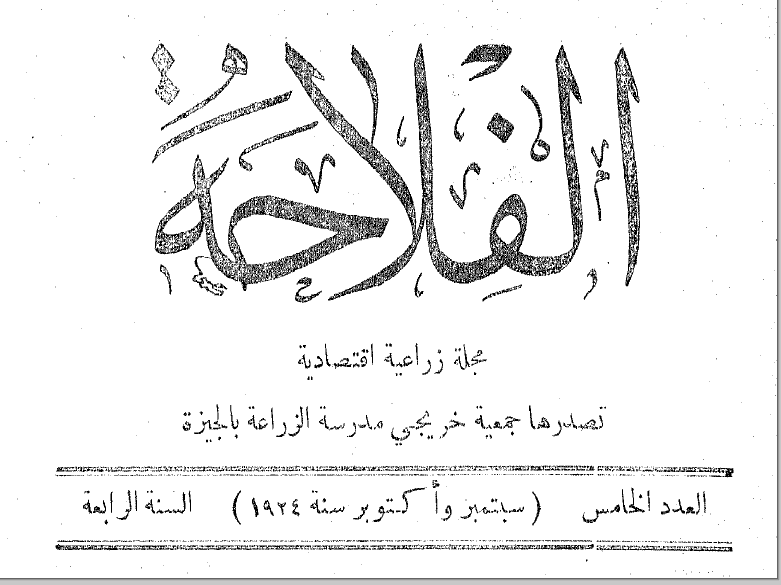 الفلاحة
مجلة زراعية اقتصادية
تصدرها جمعية خريجي مدرسة الزراعة بالجيزة
العدد الخامس (سبتمبر وأكتوبر سنة ١٩٢٤) السنة الرابعة